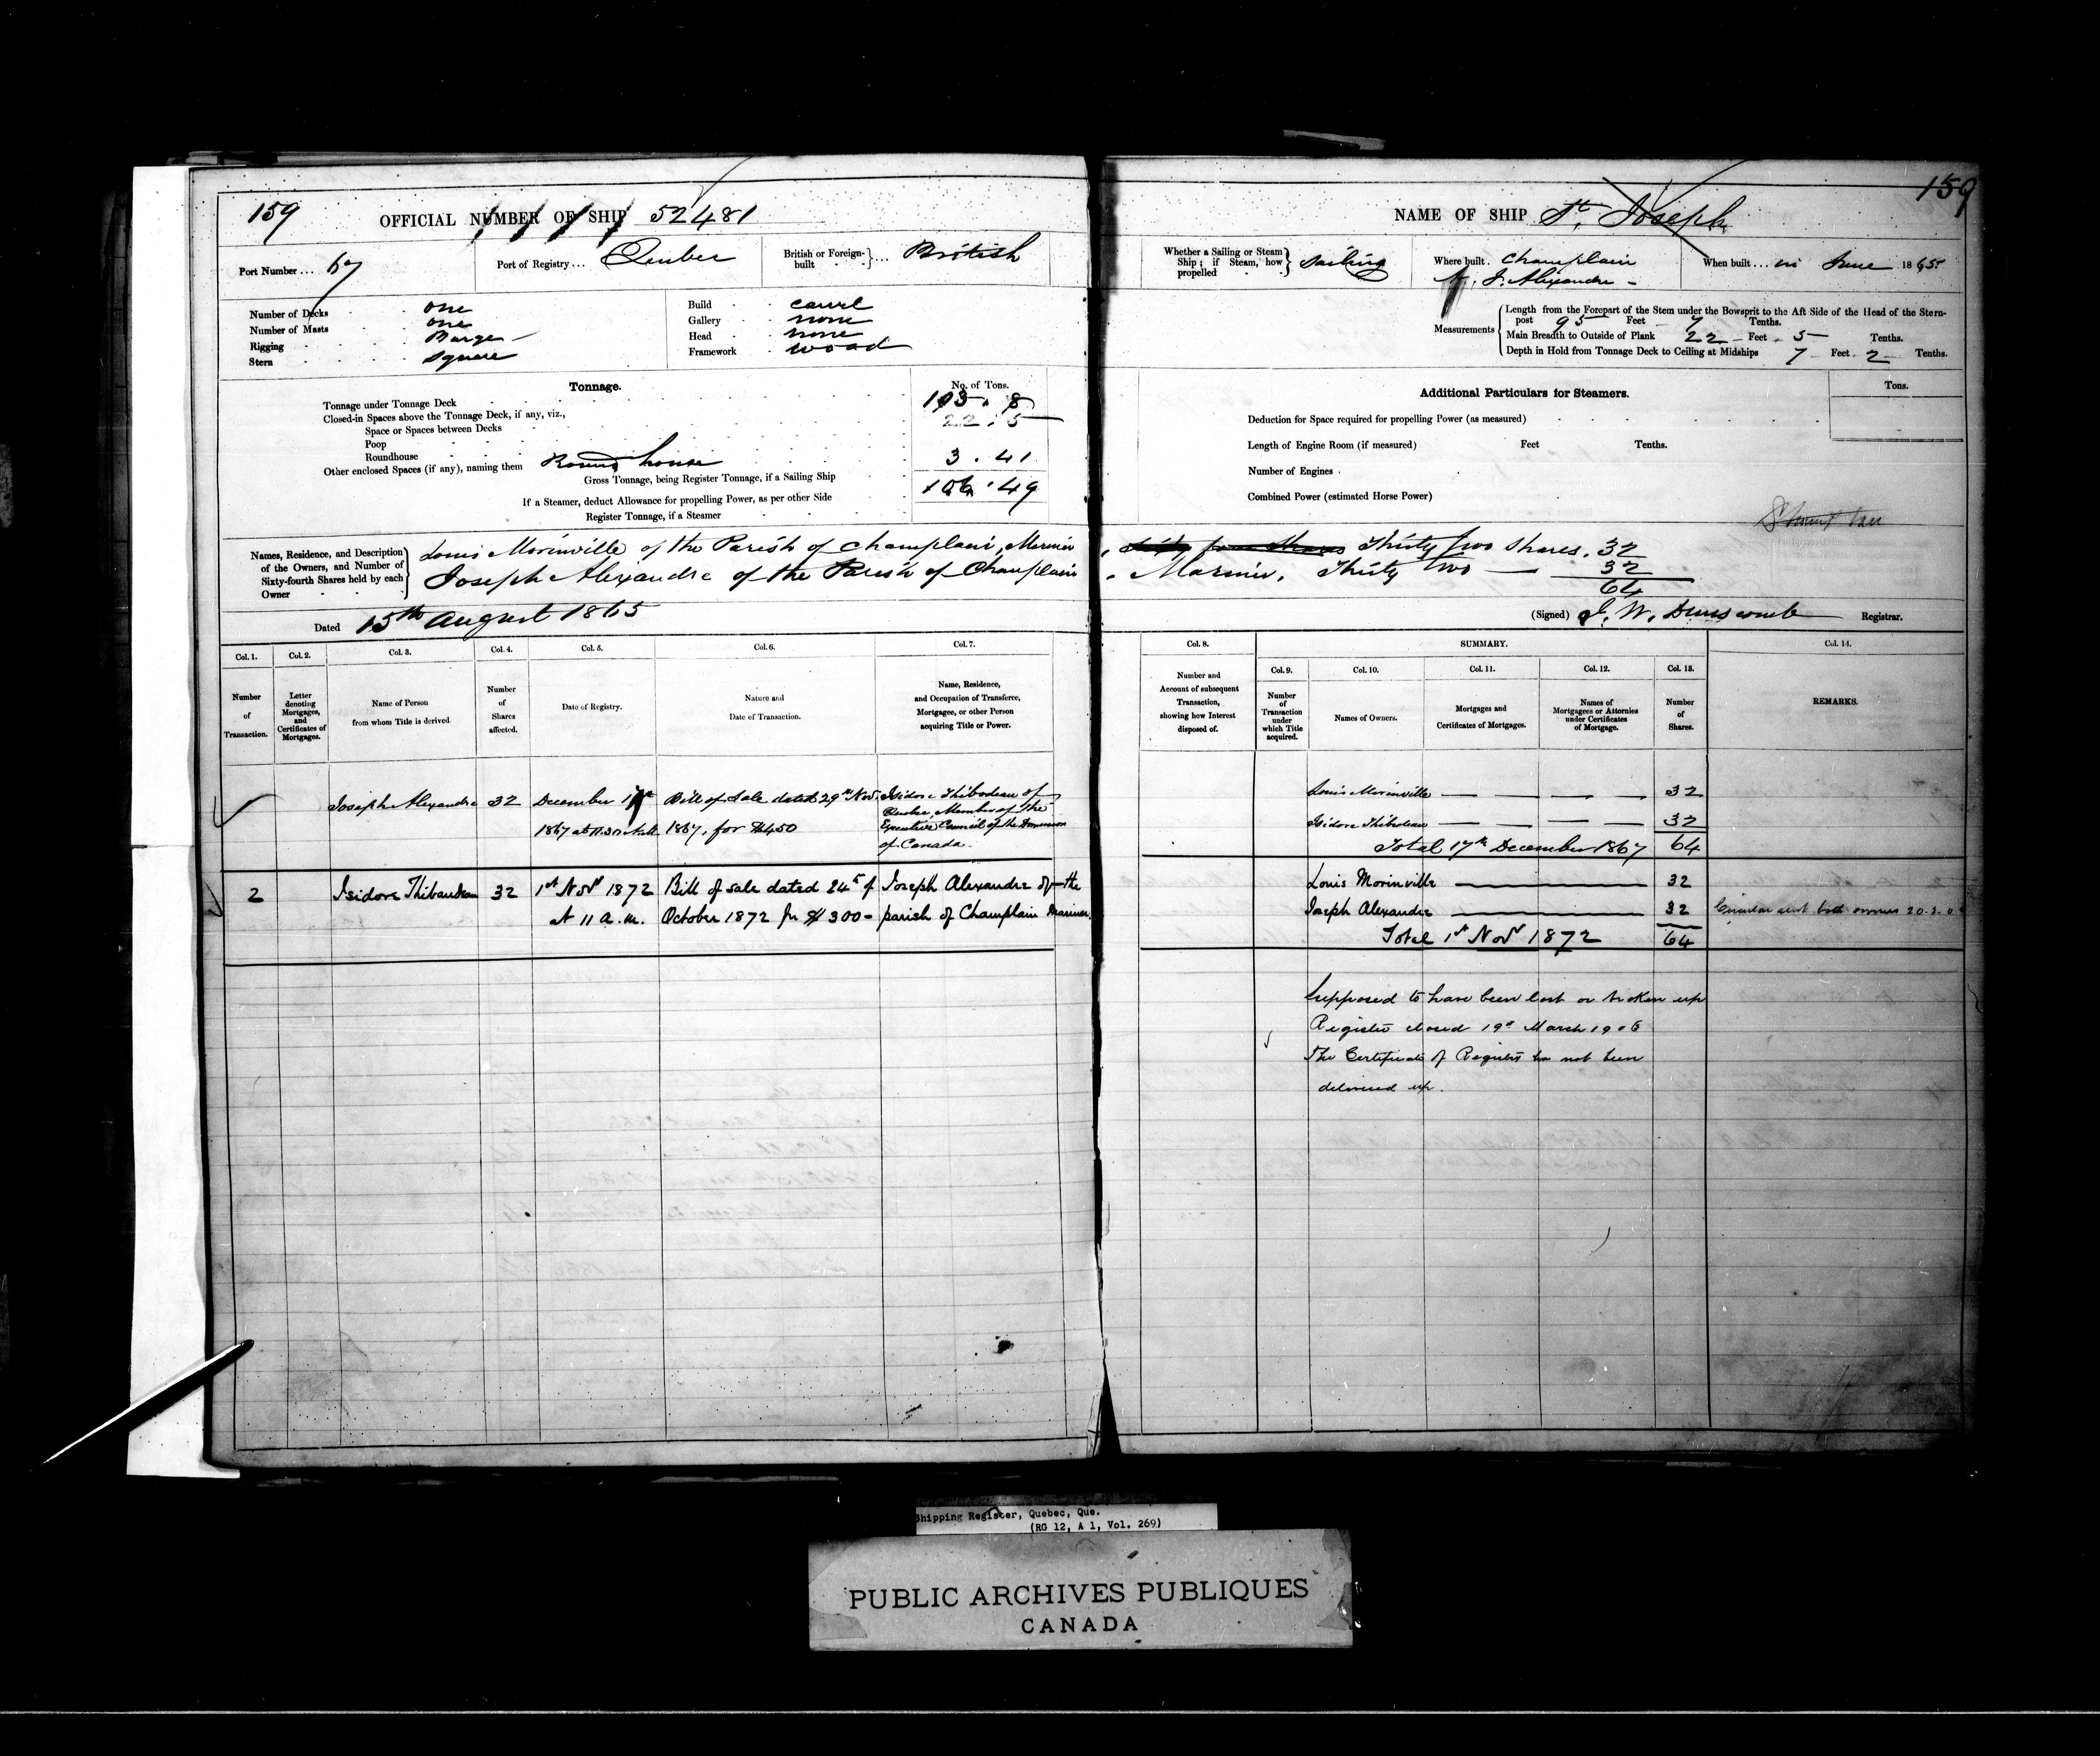 159
OFFICIAL NUMBER OF SHIP 52481
Port Number ... 67
Port of Registry ... Quebec
British or Foreign-built } ... British
Number of Decks one
Number of Masts one
Rigging Barge
Stern Square
Build carvel
Gallery none
Head none
Framework wood
Tonnage.
No. of Tons.
Tonnage under Tonnage Deck 103 . 8
Closed-in Spaces above the Tonnage Deck, if any, viz.,
Space or Spaces between Decks
Poop
Roundhouse
Other enclosed Spaces (if any), naming them Round house 3 . 41
Gross Tonnage, being Register Tonnage, if a Sailing Ship 106 . 49
If a Steamer, deduct Allowance for propelling Power, as per other Side
Register Tonnage, if a Steamer
Names, Residence, and Description of the Owners, and Number of Sixty-fourth Shares held by each Owner
Louis Morinville of the Parish of Champlain, Mariner
Joseph Alexandre of the Parish of Champlain
Dated 15th August 1865
Col. 1. Col. 2. Col. 3. Col. 4. Col. 5. Col. 6. Col. 7.
Number of Transaction.
Letter denoting Mortgages, and Certificates of Mortgages.
Name of Person from whom Title is derived
Number of Shares affected.
Date of Registry.
Nature and Date of Transaction.
Name, Residence, and Occupation of Transferee, Mortgagee, or other Person acquiring Title or Power.
Joseph Alexandre 32 December 17th Bill of Sale dated 29th Nov. Isidore Thibodeau of
Quebec, Member of the
1867 at 11.30 1867, for $450 Executive Council of the Dominion
of Canada
2 Isidore Thibaudeau 32 1st Novr 1872 Bill of sale dated 24th of Joseph Alexandre of the
At 11 a.m. October 1872 for $300- parish of Champlain Mariner
NAME OF SHIP St. Joseph
159
Whether a Sailing or Steam Ship; if Steam, how propelled } Sailing
Where built. Champlain
J. Alexandre -
When built ... in June 1865
Measurements
Length from the Forepart of the Stem under the Bowsprit to the Aft Side of the Head of the Stern-
post 95 Feet 7 Tenths.
Main Breadth to Outside of Plank 22 Feet 5 Tenths.
Depth in Hold from Tonnage Deck to Ceiling at Midships 7 Feet 2 Tenths.
Additional Particulars for Steamers.
Tons.
Deduction for Space required for propelling Power (as measured)
Length of Engine Room (if measured) Feet Tenths.
Number of Engines
Combined Power (estimated Horse Power)
Thirty two Shares. 32
Mariner. Thirty two 32
64
(Signed) J. W. Dunscomb Registrar.
Col. 8. SUMMARY. Col. 14.
Col. 9. Col. 10. Col. 11. Col. 12. Col. 13.
Number and Account of subsequent Transaction, showing how Interest disposed of.
Number of Transaction under which Title acquired.
Names of Owners.
Mortgages and Certificates of Mortgages.
Names of Mortgagees or Attornies under Certificates of Mortgage.
Number of Shares.
REMARKS.
Louis Morinville 32
Isidore Thibodeau 32
Total 17th December 1867 64
Louis Morinville 32
Joseph Alexandre 32 Circular sent both owners
Total 1st Novr 1872 64
Supposed to have been lost or broken up
Register closed 19th March 1906
The Certificate of Registry has not been
delivered up.
Shipping Register, Quebec, Que.
(RG 12, A 1, Vol. 269)
PUBLIC ARCHIVES PUBLIQUES
CANADA